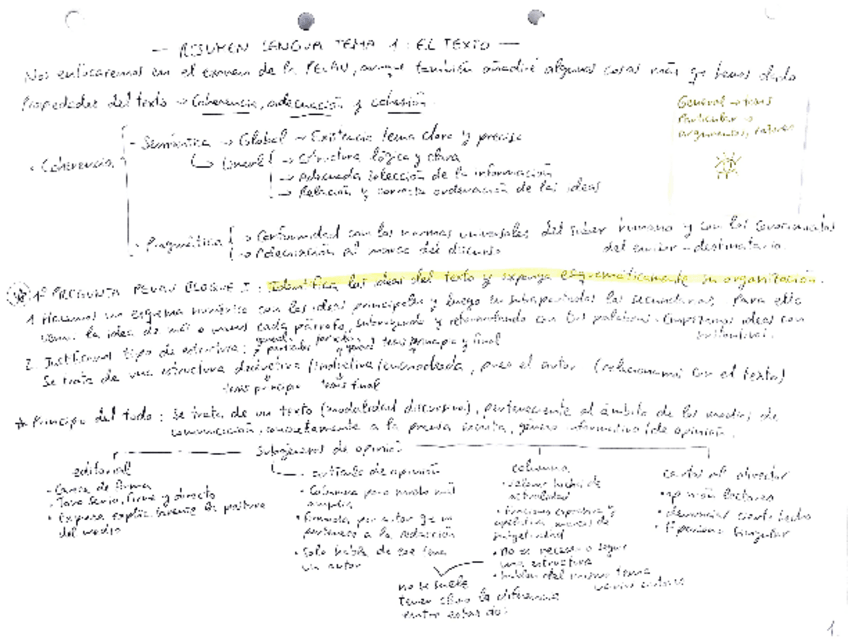 — RESUMEN LENGUA TEMA 1: EL TEXTO —
Nos enfocaremos en el examen de la PEvAU, aunque también añadiré algunas cosas más que hemos dado
Propiedades del texto → Coherencia, adecuación y cohesión.
General → tesis
Particular →
argumentos,
· Coherencia
- Semántica → Global → Existencia tema claro y preciso
↳ Lineal → Estructura lógica y clara
→ Adecuada selección de la información
→ Relación y correcta ordenación de las ideas
- Pragmática → Conformidad con las normas universales del saber humano y con los conocimientos
del emisor - destinatario.
→ Adecuación al marco del discurso
1ª PREGUNTA PEvAU BLOQUE I: Identifica las ideas del texto y exponga esquemáticamente su organización.
1. Hacemos un esquema numérico con las ideas principales y luego en subapartados las secundarias. Para ello
la idea de cada párrafo, subrayando y con tus palabras. Empezamos ideas con
sustantivos.
2. Justificar tipo de estructura: principio y final
Se trata de una estructura deductiva/inductiva/encuadrada, pues el autor (relacionamos con el texto)
tesis principio tesis final
* Principio del todo: Se trata de un texto (modalidad discursiva), perteneciente al ámbito de los medios de
comunicación, concretamente a la prensa escrita, género informativo/de opinión.
Subgéneros de opinión
editorial
- Carece de firma
- Tono serio, firme y directo
• Expresa explícitamente la postura
del medio
artículo de opinión
• Columna pero mucho más
amplia
• Firmada por autor que no
pertenece a la redacción
• Solo habla de ese tema
un autor
columna
• Valorar hechos de
actualidad
• Funciones expresiva y
apelativa, marcas de
subjetividad
• No es necesario seguir
una estructura
• Hablan del mismo tema
varios autores
cartas al director
• opinión lectores
• denuncian ciertos hechos
• 1ª persona singular
no se suele
tener clara la diferencia
entre estas dos
1